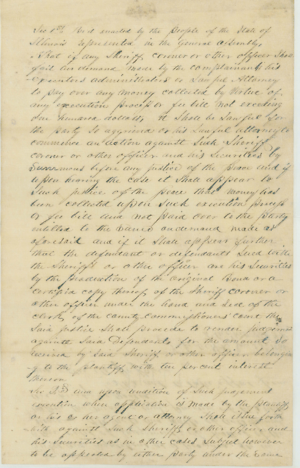 Sec 1st Be it enacted by the People of the State of
Illinois represented in the General Assembly,
That if any Sheriff coroner or other officer shall
fail on demand made by the complainant his
executors administrators or Lawful Attorney
to pay over any money collected by virtue of
any execution process or fee bill not exceeding
one hundred dollars it shall be lawful for
the party so aggrieved or his lawful attorney to
commence an action against such Sheriff
coroner or other officer and his securities by
summons before any justice of the peace and if
upon hearing the case it shall appear to
such justice of the peace that money has
been collected upon such execution process
or fee bill and not paid over to the party
entitled to the same on demand made as
aforesaid and if it shall appear further
that the defendant or defendants
the Sheriff or other officer or his securities
by the production of the original bond or a
certified copy thereof of the Sheriff coroner or
other officer under the hand and seal of the
clerk of the county commissioners court the
said justice shall proceed to render judgment
against said defendants for the amount so
received by said Sheriff or other officer belonging
to the plaintiff with ten per cent interest
thereon
Sec 2d And upon rendition of such judgment
execution when application is made by the plaintiff
or his agent or attorney shall issue forth
with against such Sheriff or other officer and
his securities as in other cases subject however
to be appealed by either party under the same